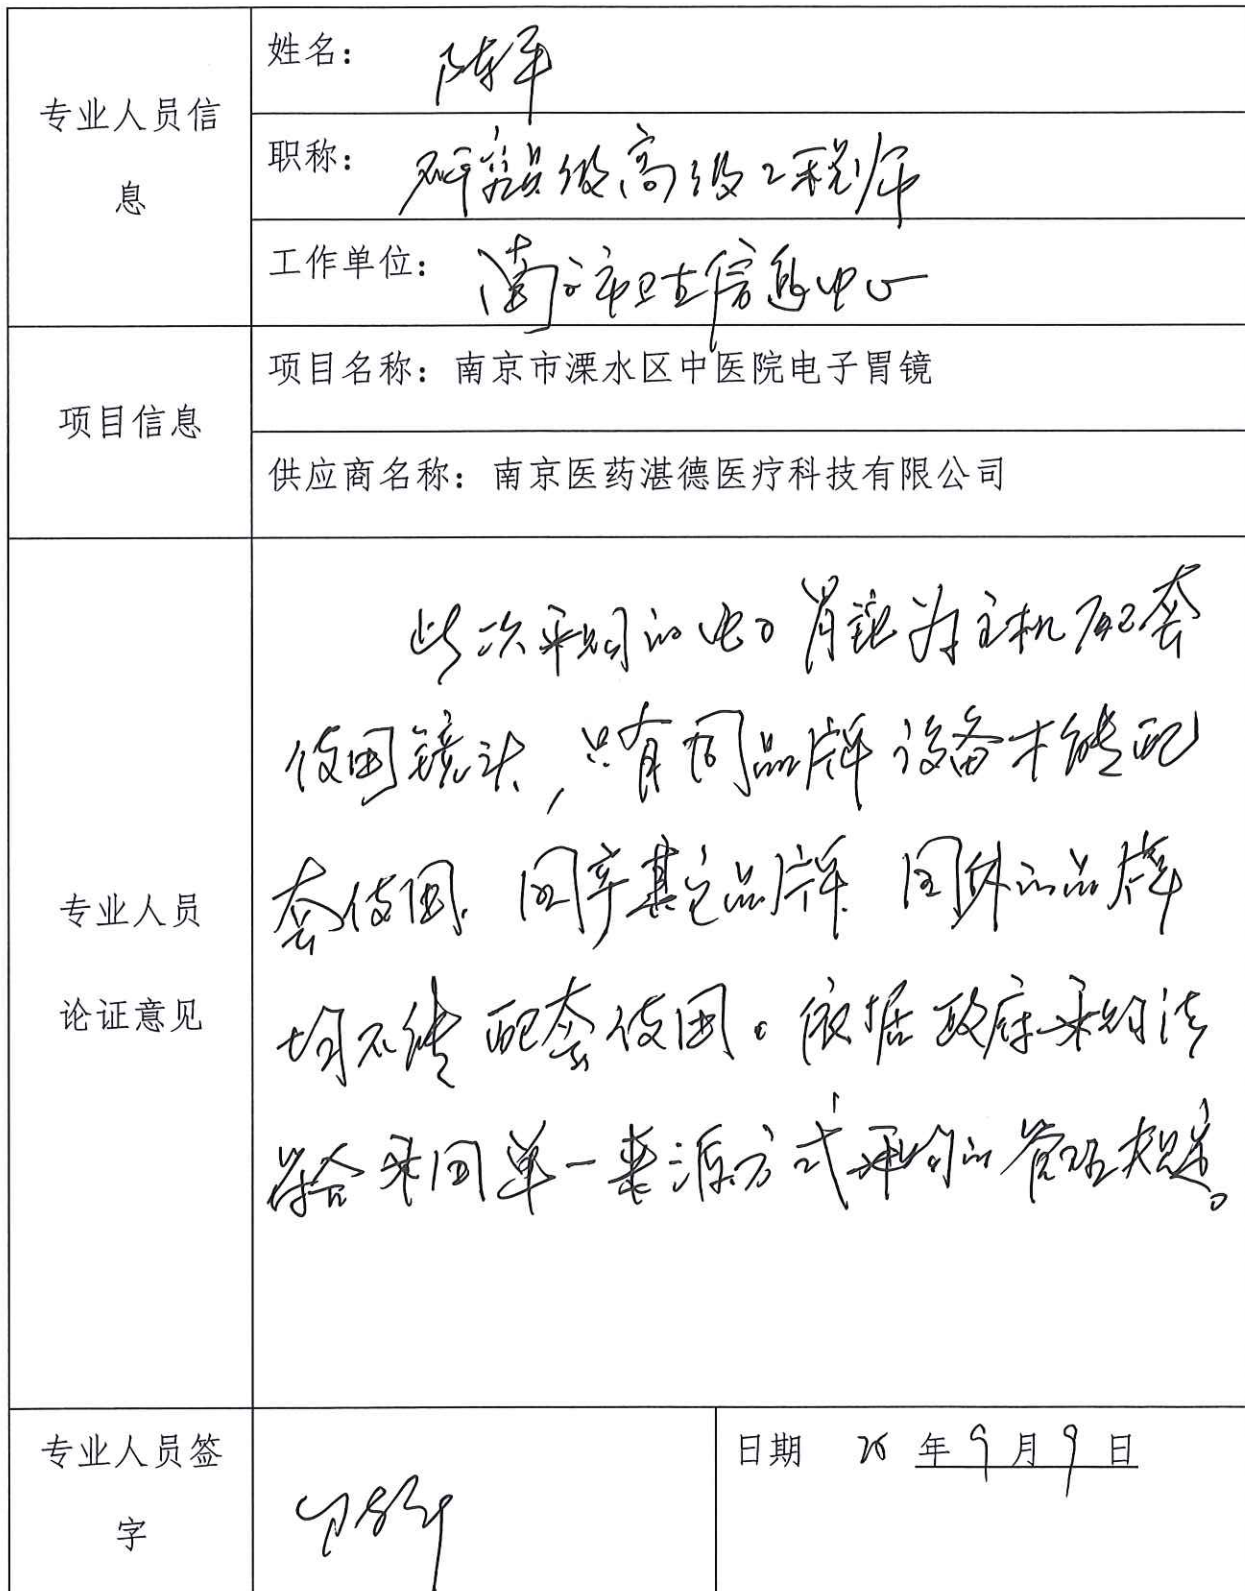 专业人员信
息
姓名：陈平
职称：研究员级高级工程师
工作单位：南京市卫生信息中心
项目信息
项目名称：南京市溧水区中医院电子胃镜
供应商名称：南京医药湛德医疗科技有限公司
专业人员
论证意见
此次采购的电子胃镜为主机配套
使用镜头，只有同品牌设备才能配
套使用。国产其它品牌、国外的品牌
均不能配套使用。依据政府采购法
符合采用单一来源方式采购的管理规定。
专业人员签
字
日期 年9月9日